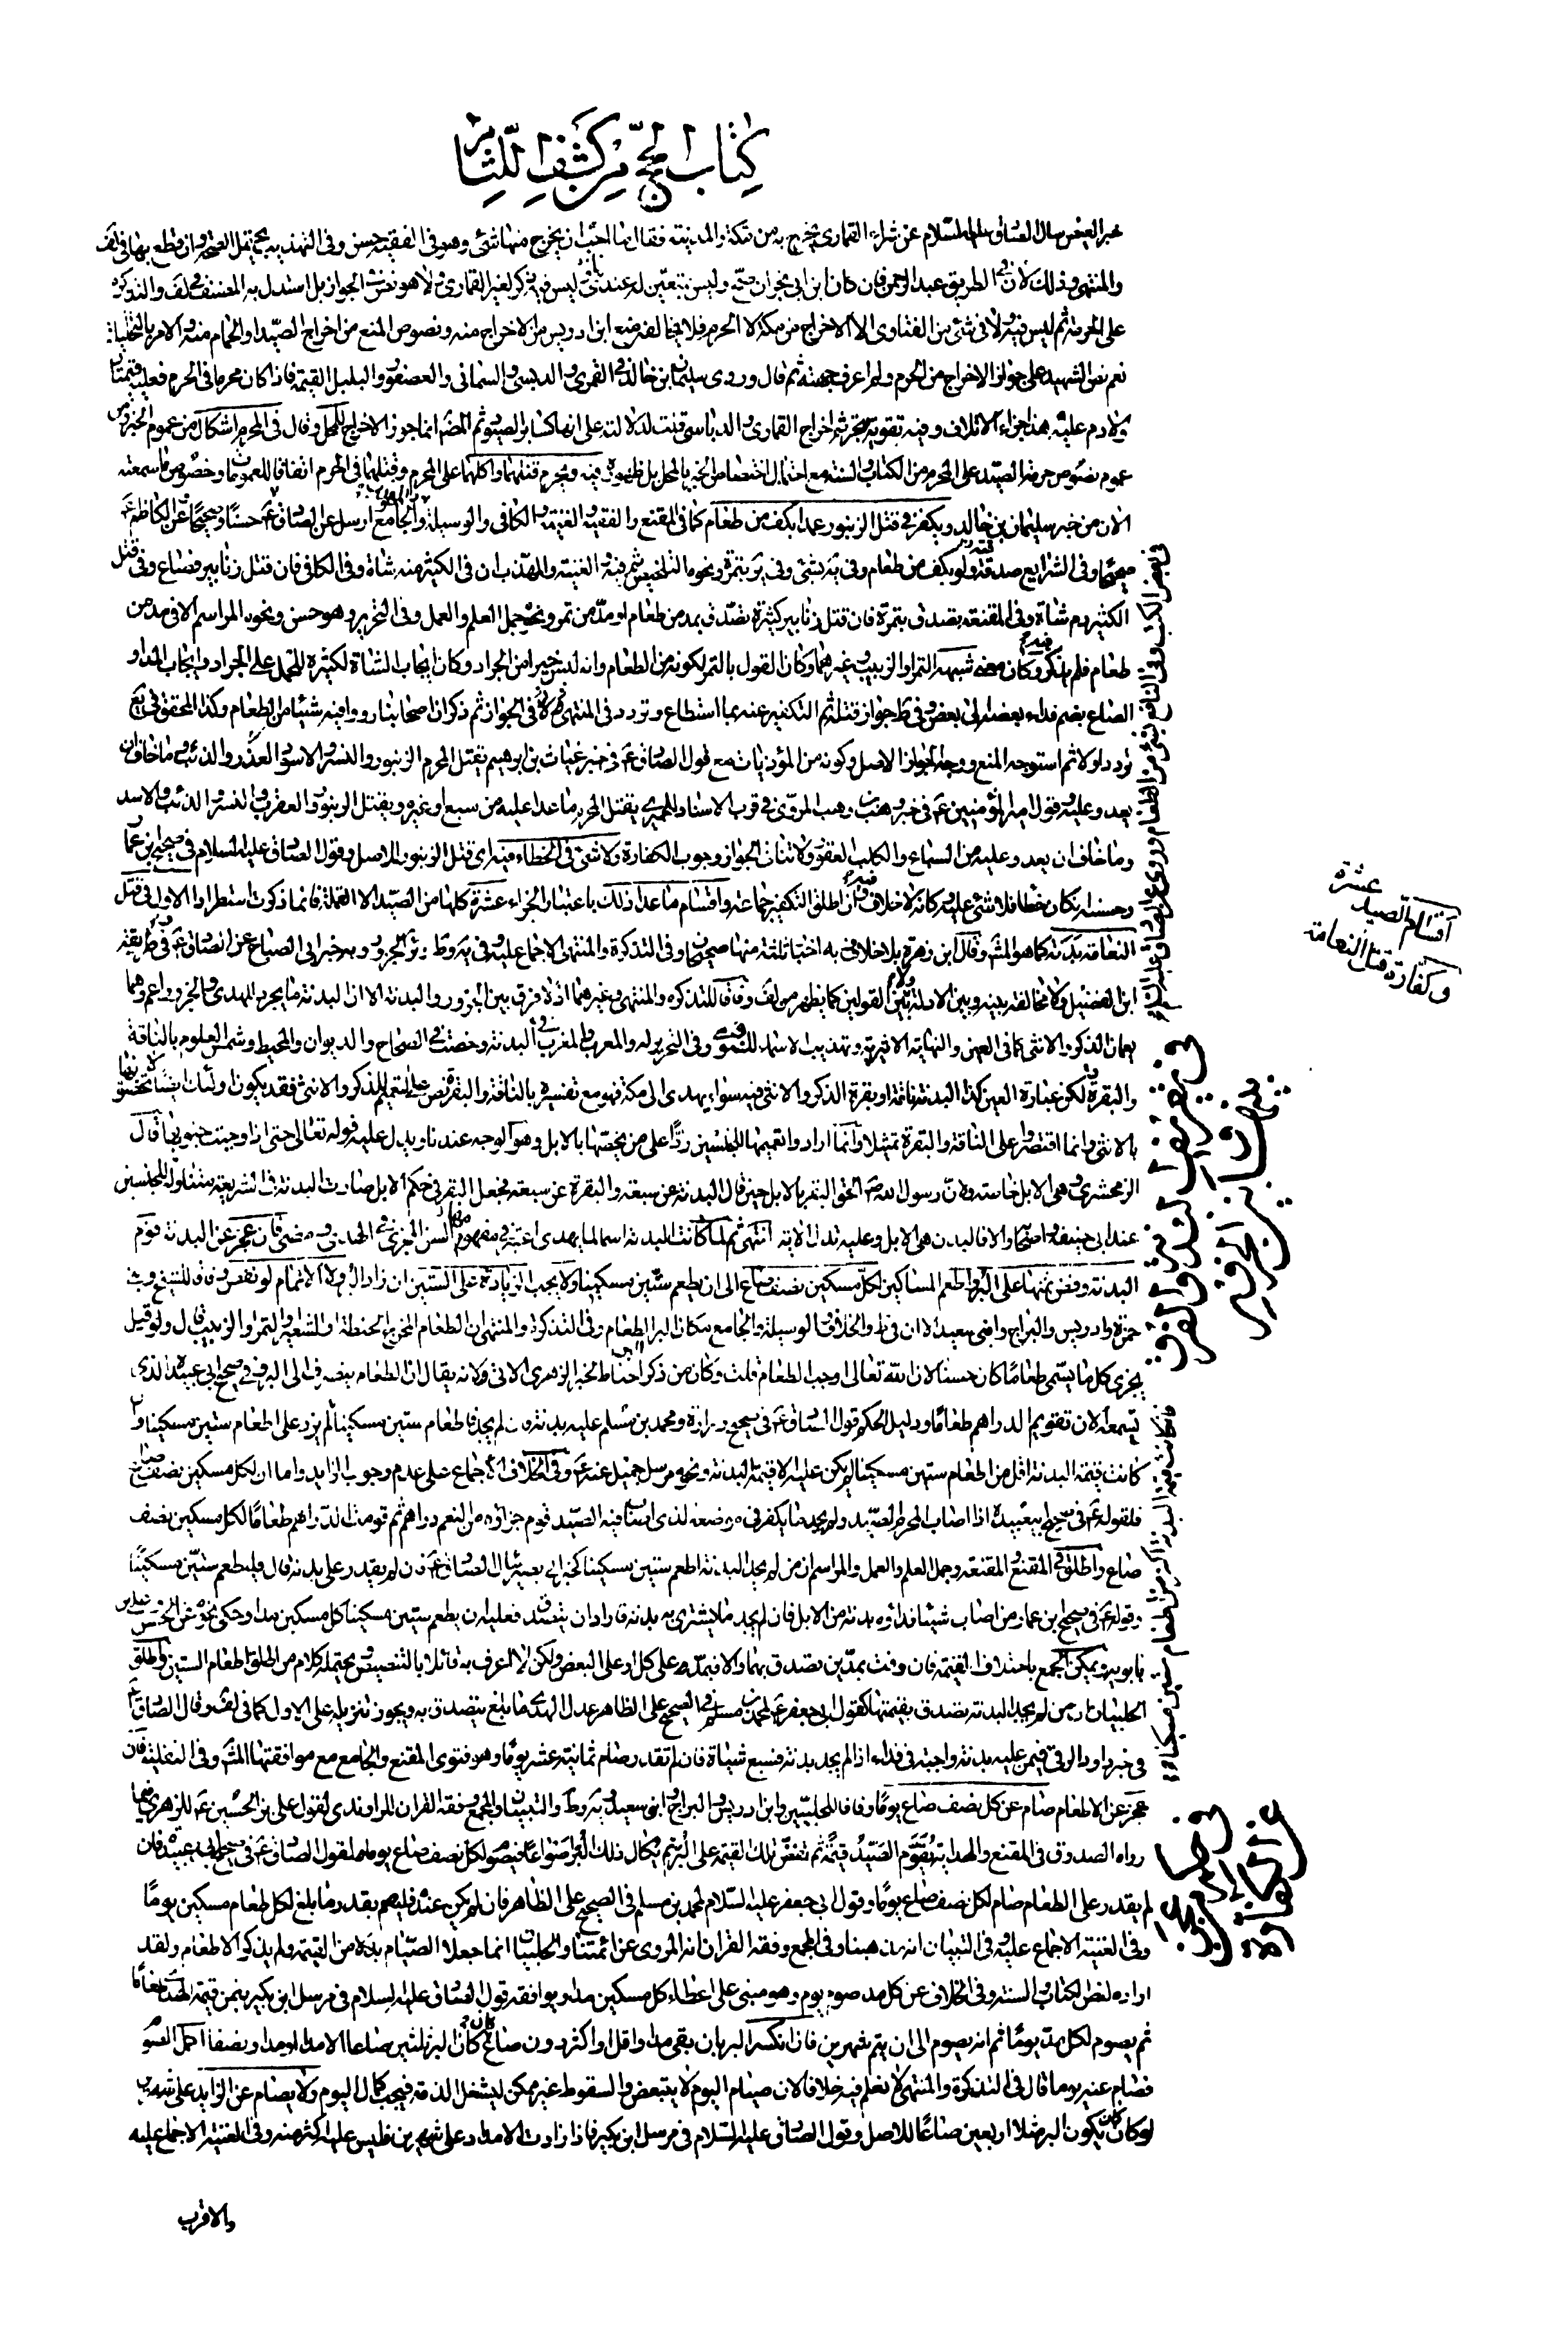 كتاب الحج من كشف اللثام
خبر العيص سال الصادق عليه السلام عن شراء القماري يخرج به من مكة والمدينة فقال ما احب ان يخرج منها شئ وهو في الفقيه حسن وفي التهذيب يحتمل الصحة وان قطع بها في لف
والمنتهى وذلك لان في الطريق عبد الرحمن فان كان ابن ابي نجران صح وليس بتعين له عندنا في ليس فيه ذكر لغير القماري ولا هو نص في الجواز بل استدل به المصنف في لف والتذكرة
على الحرمة ثم ليس فيه ولا في شئ من الفتاوى الا الاخراج من مكة لا الحرم فلا يخالفه منع ابن ادريس من الاخراج منه ونصوص المنع من اخراج الصيد او الحمام منه والامر بالتخلية
نعم نص الشهيد على جواز الاخراج من الحرم ولم اعرف جهته ثم قال وروى سليمان بن خالد في القمري والدبسي والسماني والعصفور والبلبل القيمة فاذا كان محرما في الحرم فعليه قيمتان
ولا دم عليه هذا جزاء الاتلاف وفيه تقوية تحريم اخراج القماري والدباسي قلت لدلالته على انها كسائر الصيود ثم المصنف انما جوز الاخراج للمحل وقال في المحرم اشكال من عموم الخبر ومن
عموم نصوص حرمة الصيد على المحرم من الكتاب والسنة مع احتمال اختصاص الخبر بالمحل بل ظهوره فيه ويحرم قتلهما واكلهما على المحرم وقتلهما في الحرم اتفاقا للعمومات وخصوص ما سمعته
الان من خبر سليمان بن خالد ويكفر في قتل الزنبور عمدا بكف من طعام كما في المقنع والفقيه والغنية والكافي والوسيلة والجامع ارسل عن الصادق ع حسنا وصحيحا عن الكاظم ع
صحيحا وفي الشرايع صدقة ولو بكف من طعام وفي يه بشئ وفي ير بتمرة ونحوه التلخيص ثم فيه الغنية والمهذب ان في الكثير منه شاة وفي الكافي فان قتل زنابير فصاع وفي قتل
الكثير دم شاة وفي المقنعة تصدق بتمرة فان قتل زنابير كثيرة تصدق بمد من طعام او مد من تمر ونحوه جمل العلم والعمل وفي التحرير وهو حسن ونحوه المراسم الا في مد من
طعام فلم يذكر وكان معه شبهة التمر او الزبيب وغيرهما وكان القول بالتمر لكونه من الطعام وانه ليس خيرا من الجراد وكان ايجاب الشاة لكثيره للحمل على الجراد وايجاب المد او
الصاع بضم فداء بعض الى بعض وفي ط جواز قتله ثم التكفير عنه بما استطاع وتردد في المنتهى في الجواز ثم ذكر ان اصحابنا رووا فيه شيئا من الطعام وكذا المحقق في يع
تردد اولا ثم استوجه المنع ووجه الجواز الاصل وكونه من المؤذيات مع قول الصادق ع في خبر غياث بن ابرهيم يقتل المحرم الزنبور والنسر والاسود الغدر والذئب وما خاف ان
يعدو عليه وقول امير المؤمنين ع في خبر وهب بن وهب المروي في قرب الاسناد للحميري يقتل المحرم ما عدا عليه من سبع او غيره ويقتل الزنبور والعقرب والنسر والذئب والاسد
وما خاف ان يعدو عليه من السباع والكلب العقور ولا تنافي الجواز وجوب الكفارة ولا شئ في الخطاء فيه اي قتل الزنبور للاصل وقول الصادق عليه السلام في صحيح ابن عمار
وحسنه ان كان خطأ فلا شئ عليه وكانه لا خلاف فيه وان اطلق التكفير جماعة واقسام ما عدا ذلك باعتبار الجزاء عشرة كلها من الصيد الا القملة فانما ذكرت استطرادا الاول في قتل
النعامة بدنة كما هو المشهور وقال ابن زهرة بلا خلاف به اخبار ثلثة منها صحيحان وفي التذكرة والمنتهى الاجماع عليه وفي يه وط وئر الجزور وبه خبر ابي الصباح عن الصادق ع في طريقه
ابن الفضيل ولا مخالفة بينه وبين الادلة ولا بين القولين كما يظهر من لف وفاقا للتذكرة والمنتهى وغيرهما اذ لا فرق بين الجزور والبدنة الا ان البدنة ما يحرز للهدى والجزور اعم وهما
يعمان الذكر والانثى كما في العين والنهاية الاثيرية وتهذيب الاسماء للنووي وفي التحرير له والمعرب والمغرب في البدنة وخصت في الصحاح والديوان والمحيط وشمس العلوم بالناقة
والبقرة لكن عبارة العين كذا البدنة ناقة او بقرة الذكر والانثى فيه سواء يهدى الى مكة فهو مع تفسيره بالناقة والبقرة نص على التعميم للذكر والانثى فقد يكون اولئك ايضا لا يخصونها
بالانثى وانما اقتصروا على الناقة والبقرة تمثيلا وانما ارادوا تعميمها للجنسين ردا على من يخصها بالابل وهو الوجه عندنا ويدل عليه قوله تعالى حتى اذا وجبت جنوبها قال
الزمخشري وهي الابل خاصة ولان رسول الله ص الحق البقر بالابل حين قال البدنة عن سبعة والبقرة عن سبعة فجعل البقر في حكم الابل صارت البدنة في الشريعة متناولة للجنسين
عند ابي حنيفة واصحابه والا فالبدن هي الابل وعليه تدل الاية انتهى ثم لما كانت البدنة اسما لما يهدى اعتبر في مفهومها السن المجزي في الهدى وقد مضى فان عجز عن البدنة قوم
البدنة وفض ثمنها على البر واطعم المساكين لكل مسكين نصف صاع الى ان يطعم ستين مسكينا ولا يجب الزيادة على الستين ان زاد البر ولا الاتمام لو نقص وفاقا للشيخ وبني
حمزة وادريس والبراج وابني سعيد الا ان في ط والخلاف والوسيلة والجامع مكان البر الطعام وفي التذكرة والمنتهى ان الطعام المخرج الحنطة او الشعير او التمر او الزبيب قال ولو قيل
يجزي كل ما يسمى طعاما كان حسنا لان الله تعالى اوجب الطعام قلت وكان من ذكر البر احتاط لخبر الزهري الاتي ولانه يقال ان الطعام ينصرف الى البر في صحيح ابي عبيدة الذي
تسمعه لان تقويم الدراهم طعاما ودليل الحكم قول الصادق ع في صحيح زرارة ومحمد بن مسلم عليه بدنة فان لم يجد فاطعام ستين مسكينا لم يزد على اطعام ستين مسكينا وان
كانت قيمة البدنة اقل من اطعام ستين مسكينا لم يكن عليه الا قيمة البدنة ونحوه مرسل جميل عنه ع وفي الخلاف الاجماع على عدم وجوب الزايد واما ان لكل مسكين نصف صاع
فلقوله ع في صحيح ابي عبيدة اذا اصاب المحرم الصيد ولم يجد ما يكفر في موضعه الذي اصاب فيه الصيد قوم جزاؤه من النعم دراهم ثم قومت الدراهم طعاما لكل مسكين نصف
صاع واطلق في المقنع والمقنعة وجمل العلم والعمل والمراسم ان من لم يجد البدنة اطعم ستين مسكينا كخبر ابي بصير سال الصادق ع فان لم يقدر على بدنة قال فليطعم ستين مسكينا
وقوله ع في صحيح ابن عمار ومن اصاب شيئا فداؤه بدنة من الابل فان لم يجد ما يشتري به بدنة فاراد ان يتصدق فعليه ان يطعم ستين مسكينا كل مسكين مدا وحكى نحوه عن الحسن وعلي بن
بابويه ويمكن الجمع باختلاف القيمة فان وفت بمدين تصدق بهما والا فبمد على كل او على البعض ولكن لا اعرف به قائلا بالتنصيص ويحتمله كلام من اطلق اطعام الستين واطلق
الحلبيان ان من لم يجد البدنة تصدق بقيمتها لقول ابي جعفر ع لمحمد بن مسلم في الصحيح على الظاهر عدل الهدى ما بلغ يتصدق به ويجوز تنزيله على الاول كما في لف وقال الصادق ع
في خبر داود الرقي فيمن عليه بدنة واجبة في فداء اذا لم يجد بدنة فسبع شياة فان لم تقدر صام ثمانية عشر يوما وهو فتوى المقنع والجامع مع موافقتها المشهور وفي النعامة فان
عجز عن الاطعام صام عن كل نصف صاع يوما وفاقا للحلبيين وابن ادريس والبراج وابني سعيد ويه وط والتبيان والمجمع وفقه القران للراوندي لقول علي بن الحسين ع للزهري فيما
رواه الصدوق في المقنع والهداية يقوم الصيد قيمة ثم تفض تلك القيمة على البر ثم يكال ذلك البر اصواعا فيصوم لكل نصف صاع يوما ولقول الصادق ع في صحيح ابي عبيدة فان
لم يقدر على الطعام صام لكل نصف صاع يوما وقول ابي جعفر عليه السلام لمحمد بن مسلم في الصحيح على الظاهر فان لم يكن عنده فليصم بقدر ما بلغ لكل طعام مسكين يوما
وفي الغنية الاجماع عليه وفي التبيان انه مذهبنا وفي المجمع وفقه القران انه المروي عن ائمتنا والحلبيان انما جعلا الصيام بدلا من القيمة ولم يذكرا الاطعام ولقد
اراده لنص الكتاب والسنة وفي الخلاف عن كل مد صوم يوم وهو مبني على اعطاء كل مسكين مدا ويوافقه قول الصادق عليه السلام في مرسل ابن بكير يثمن قيمة الهدى طعاما
ثم يصوم لكل مد يوما ثم انه يصوم الى ان يتم شهرين فان انكسر البر بان بقي مد او اقل او اكثر دون صاع كان البر ثلثين صاعا الا مدا او مدا ونصفا اكمل الصوم
فصام عنه يوما قال في التذكرة والمنتهى لا نعلم فيه خلافا لان صيام اليوم لا يتبعض والسقوط غير ممكن لشغل الذمة فيجب كمال اليوم ولا يصام عن الزايد على شهرين
لو كان يكون البر مثلا اربعين صاعا للاصل وقول الصادق عليه السلام في مرسل ابن بكير فاذا زادت الامداد على شهرين فليس عليه اكثر منه وفي الغنية الاجماع عليه
والاقرب
اقسام الصيد عشرة
وكفارة قتل النعامة